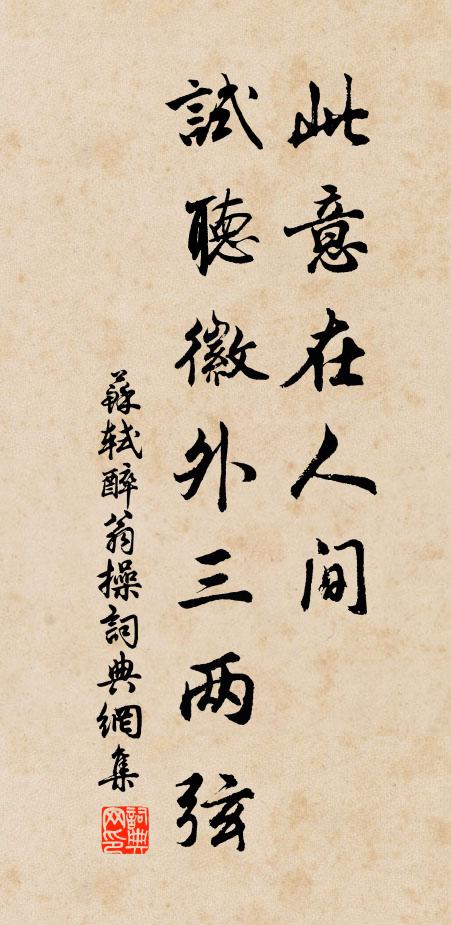 此意在人间
試聽徽外三两弦
蘇軾醉翁操詞典網集
詞典网印